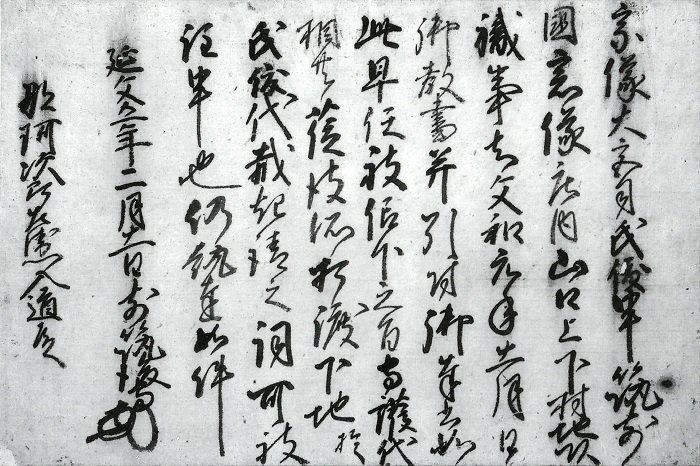 宗像大宮司氏俊申筑前
國宗像庄内山口上下村地頭
職事去文和元年十二月 日
御教書并引付御奉書如
此早任被仰下之旨守護代
相共莅彼所打渡下地於
氏俊代載起請之詞可被
注申也仍執達如件
延文二年二月十一日前筑後守
那珂次郎左衛門入道殿